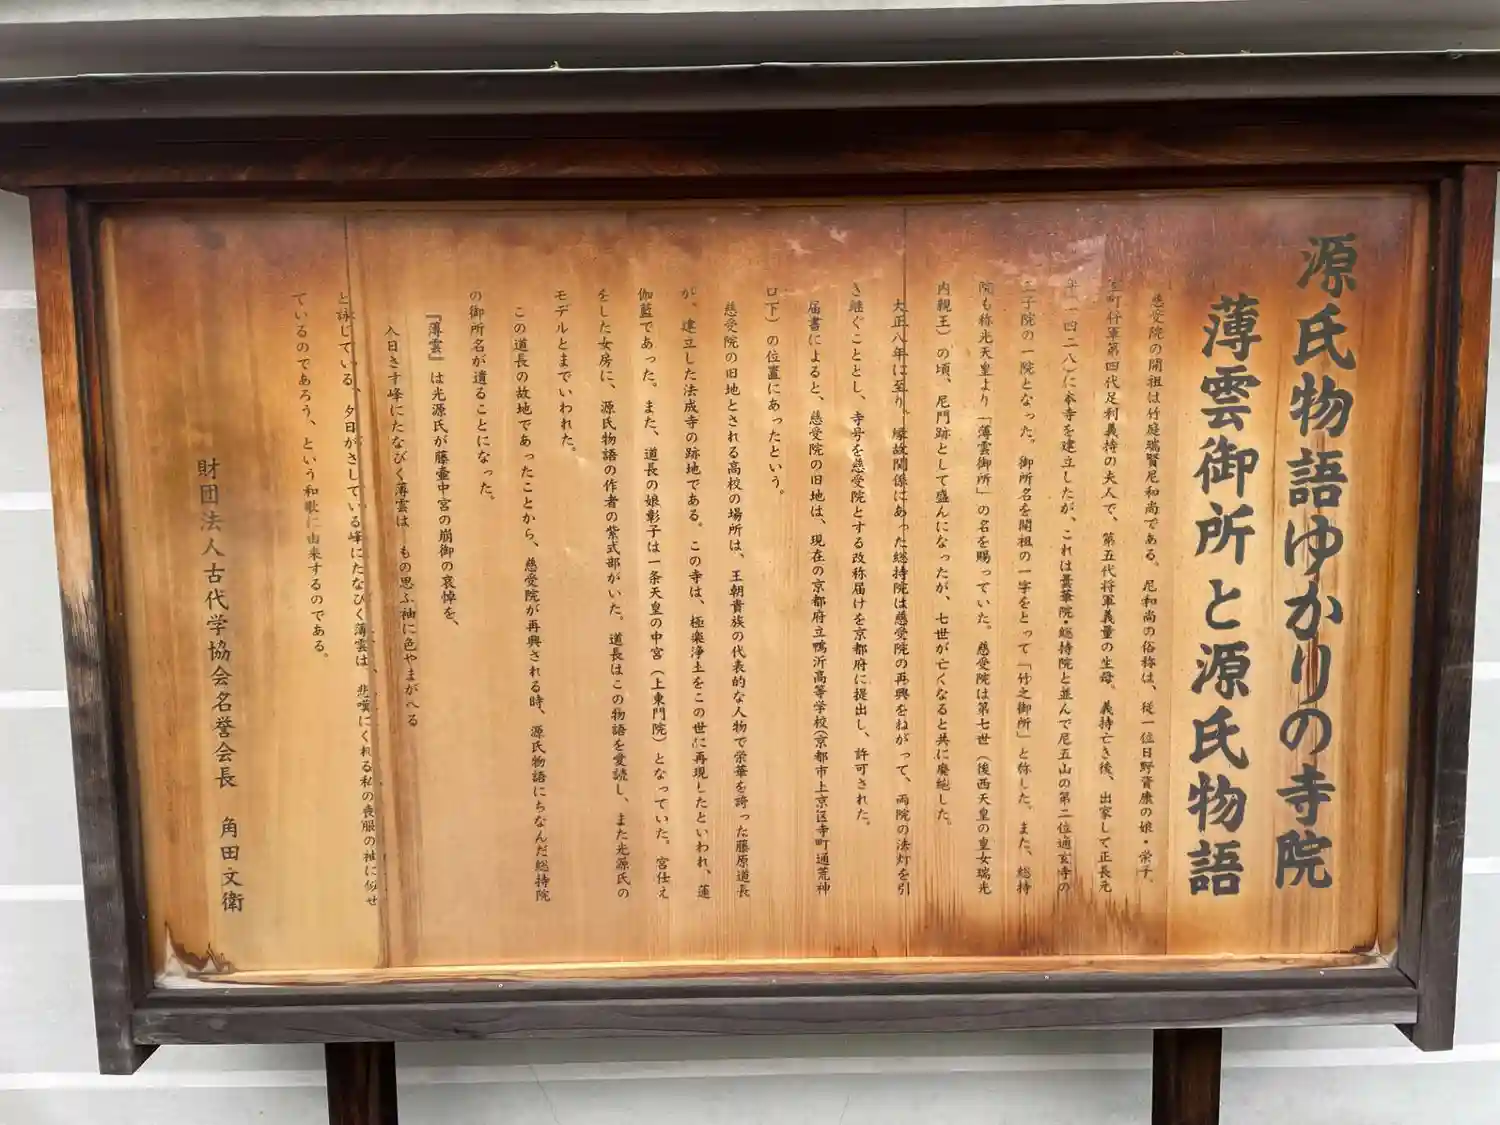 源氏物語ゆかりの寺院
薄雲御所と源氏物語
慈受院の開祖は竹庭瑞賢尼和尚である。尼和尚の俗称は、従一位日野資康の娘・栄子、
室町将軍第四代足利義持の夫人で、第五代将軍義量の生母。義持亡き後、出家して正長元
年(一四二八)に本寺を建立したが、これは曇華院・総持院と並んで尼五山の第二位通玄寺の
三子院の一院となった。御所名を開祖の一字をとって「竹之御所」と称した。また、総持
院も称光天皇より「薄雲御所」の名を賜っていた。慈受院は第七世(後西天皇の皇女瑞光
内親王)の頃、尼門跡として盛んになったが、七世が亡くなると共に廃絶した。
大正八年に至り、縁故関係にあった総持院は慈受院の再興をねがって、両院の法灯を引
き継ぐこととし、寺号を慈受院とする改称届けを京都府に提出し、許可された。
届書によると、慈受院の旧地は、現在の京都府立鴨沂高等学校(京都市上京区寺町通荒神
口下)の位置にあったという。
慈受院の旧地とされる高校の場所は、王朝貴族の代表的な人物で栄華を誇った藤原道長
が、建立した法成寺の跡地である。この寺は、極楽浄土をこの世に再現したといわれ、蓮
伽藍であった。また、道長の娘彰子は一条天皇の中宮(上東門院)となっていた。宮仕え
をした女房に、源氏物語の作者の紫式部がいた。道長はこの物語を愛読し、また光源氏の
モデルとまでいわれた。
この道長の故地であったことから、慈受院が再興される時、源氏物語にちなんだ総持院
の御所名が遺ることになった。
『薄雲』は光源氏が藤壷中宮の崩御の哀悼を、
入日さす峰にたなびく薄雲は もの思ふ袖に色やまがへる
と詠じている、夕日がさしている峰にたなびく薄雲は、悲嘆にくれる私の喪服の袖に似せ
ているのであろう、という和歌に由来するのである。
財団法人古代学協会名誉会長 角田文衛